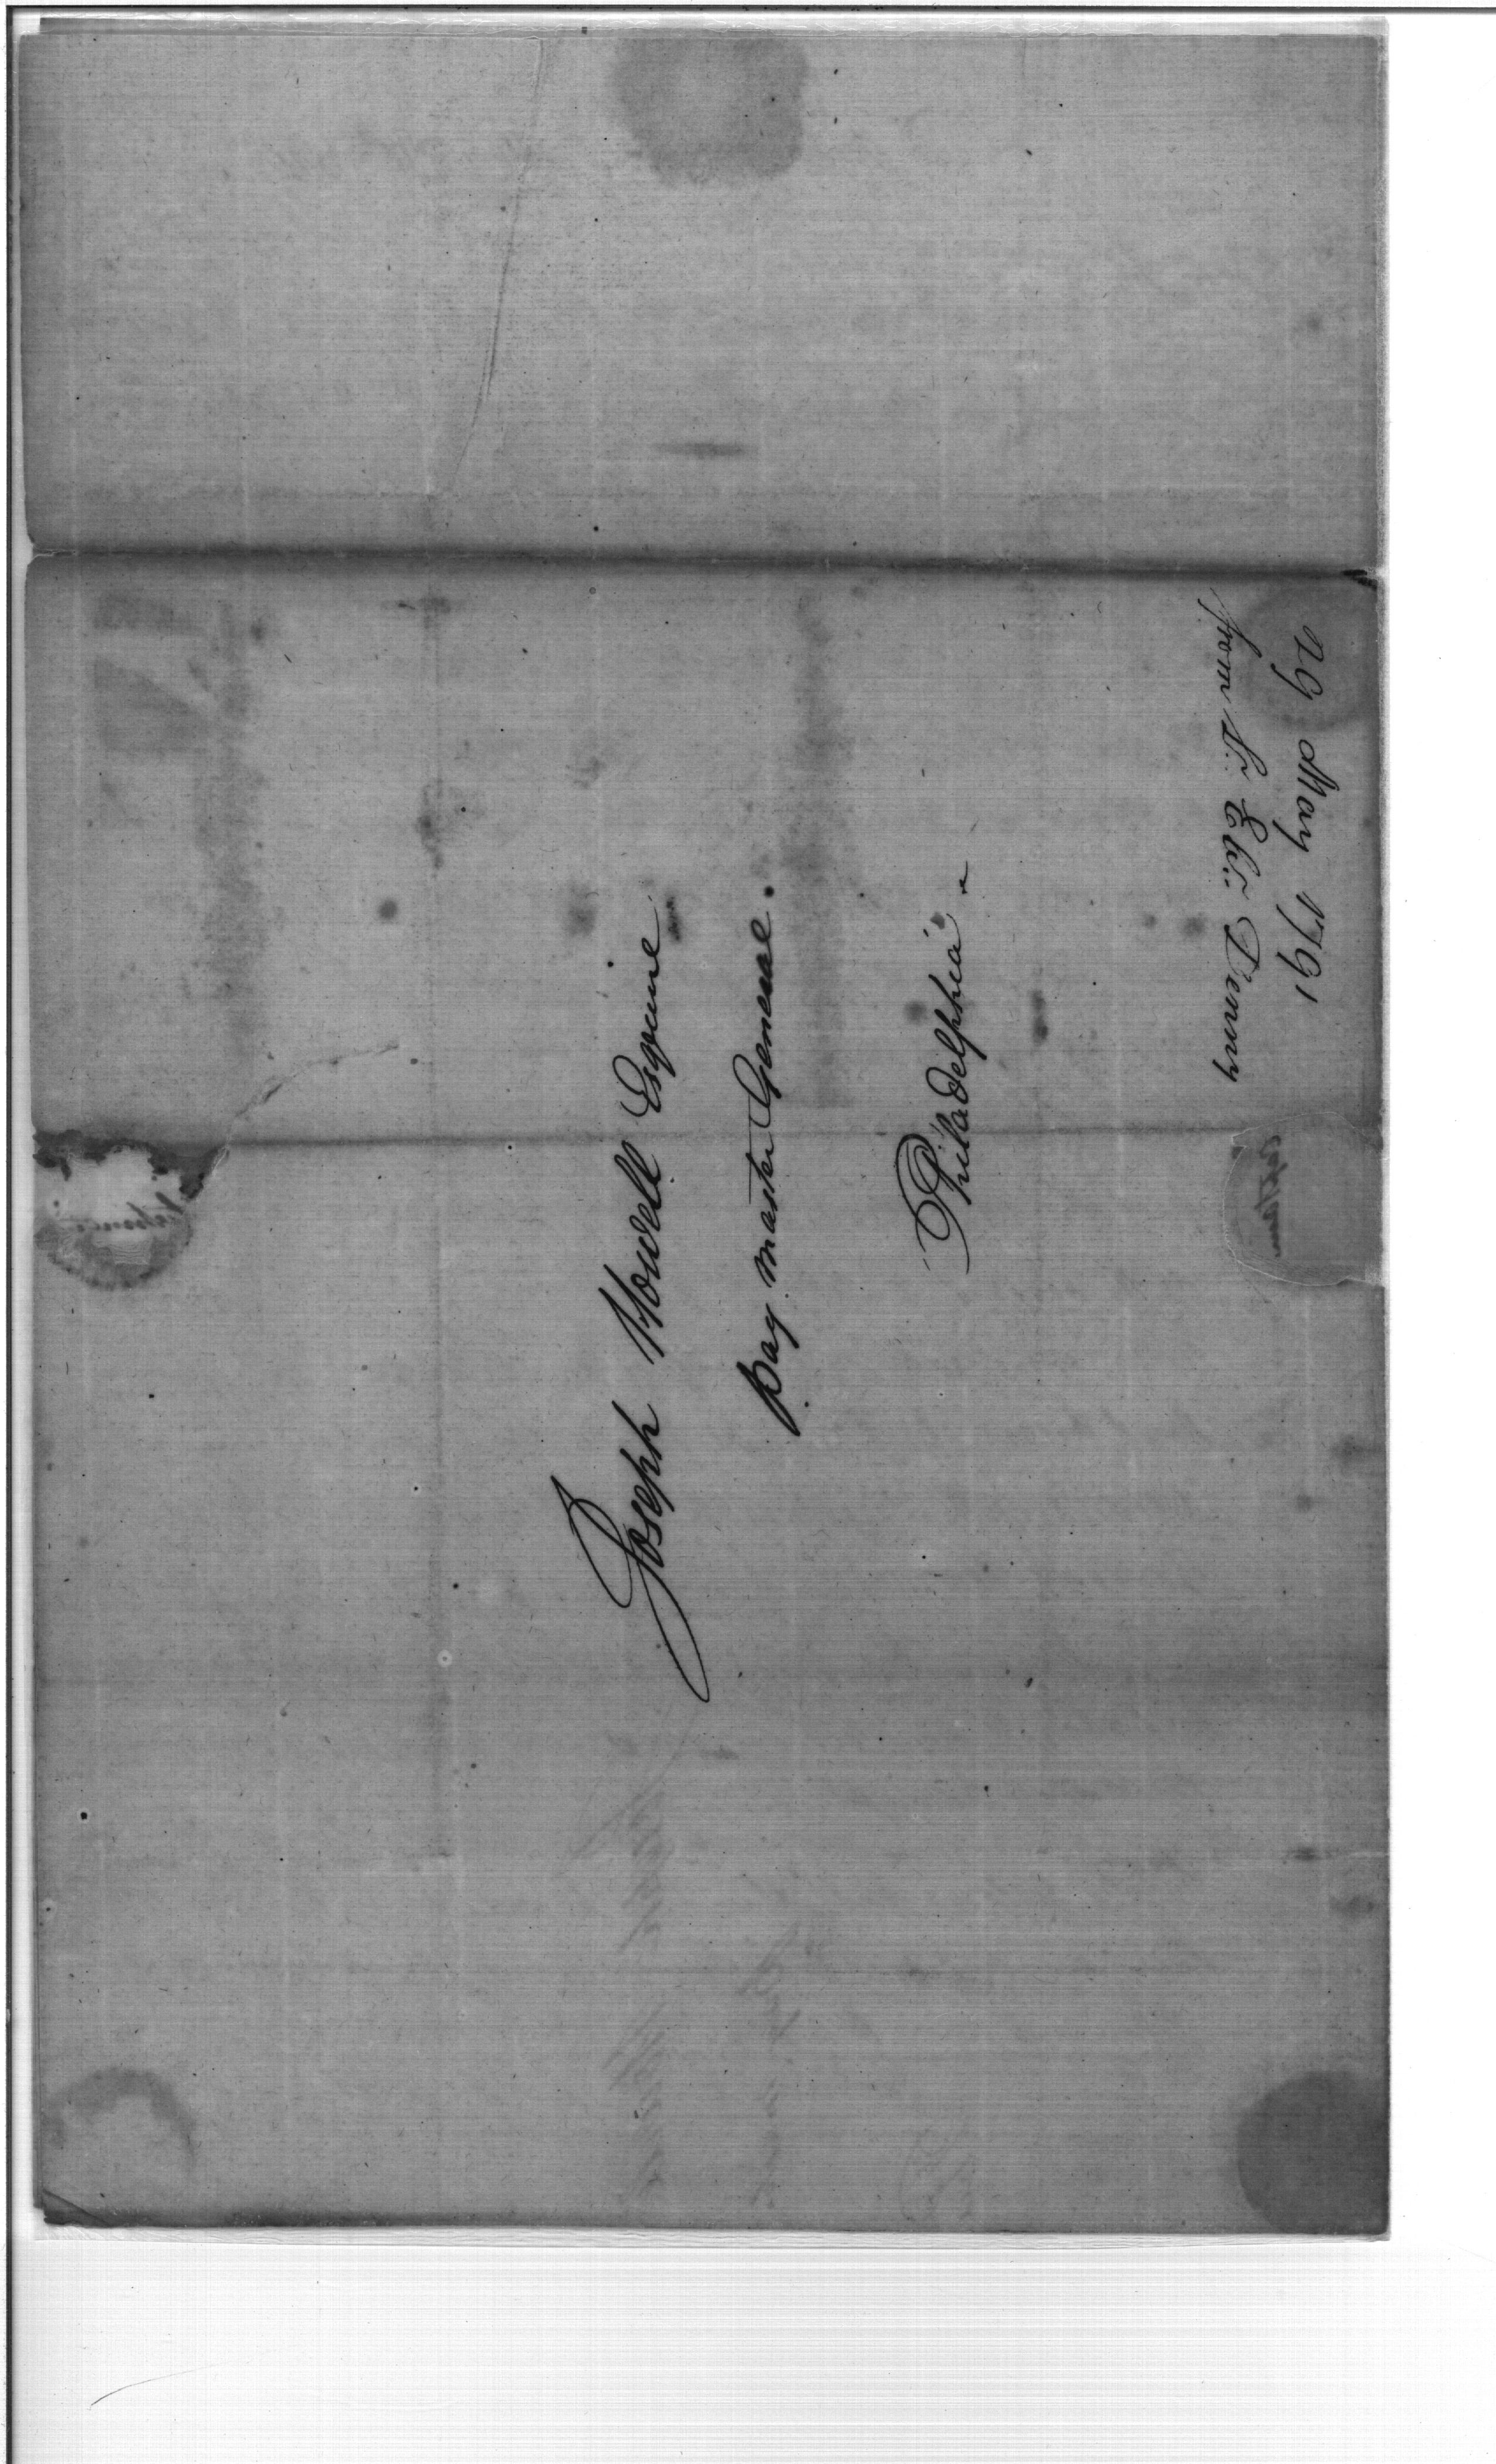 Joseph Howell Esquire
Pay master General.
Philadelphia
29 May 1791
from Lt. Eb.. Denny